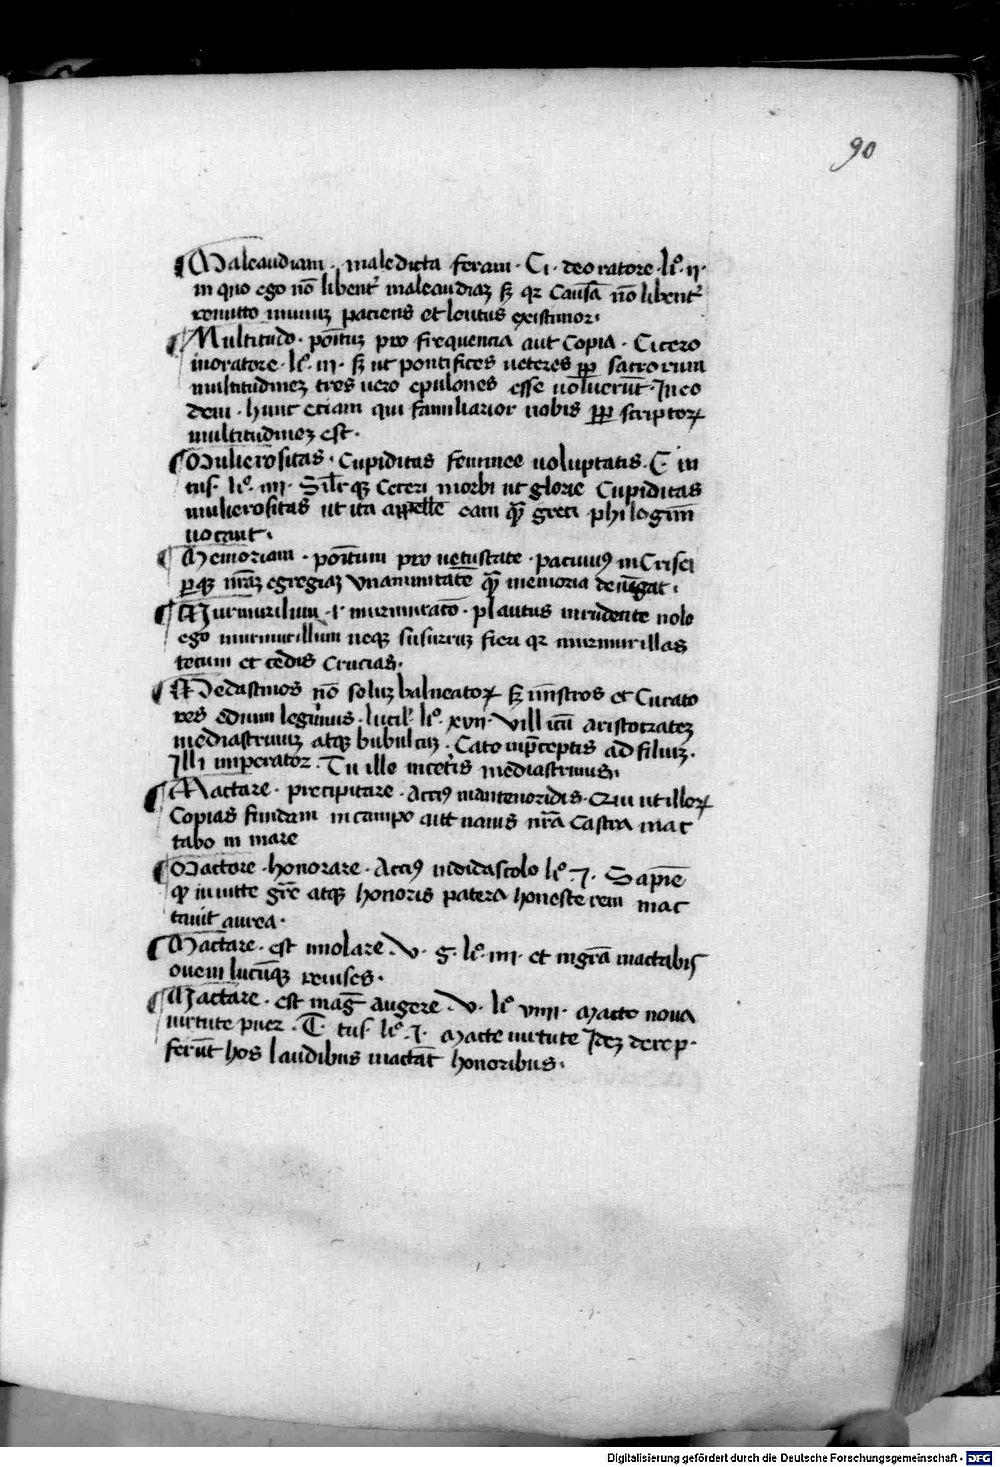 90
¶ Maleaudiam · maledicta feram · Ci · deoratore · lіº · ii ·
in quo ego nō libent᷑ maleaudiaꝫ sꝫ qꝛ causā nō libent᷑
remitto minuꝫ paciens et lentus existimor ·
¶ Multitudo · poītuꝫ pro frequencia aut Copia · Cicero
inoratore · lº · iii · sꝫ ut pontifices veteres ꝓꝑ sacrorum
multitudineꝫ tres vero epulones esse voluerūt · In eo
dem · hunc etiam qui familiarior nobis ꝓꝑ scriptoꝝ
multitudineꝫ est ·
¶ Mulierositas · Cupiditas feminee voluptatis · T · in
tus · liº · iiii · Silr̄ qꝫ Ceteri morbi ut glorie Cupiditas
mulierositas ut ita appellē eam qm̄ greci philogim̄
vocant ·
¶ Memoriam · poītum pro vetustate · pacuviꝰ in Crisei
ꝑqꝫ nr̄aꝫ egregiaꝫ vnanimitatē qm̄ memoria
¶ Murmurilum · murmuratō · plautus inrudente nolo
ego murmurillum neqꝫ susurruꝫ fieri qꝛ murmurillas
tecum et te dis Crucias ·
¶ Medastinos nō soluꝫ balneatoꝝ sꝫ minstros et Curato
res edium legimus · lucil · liº · xvii · Vill icū aristocrateꝫ
mediastrinuꝫ atqꝫ bubulcuꝫ · Cato inp̄ceptis ad filiuꝫ ·
Illi imperator · Tu ille inceteris mediastrinus ·
¶ Mactare · precipitare · Acciꝰ inantenoridis · Qui ut illoꝝ
Copias fundam in campo aut navis nr̄a Castra mac
tabo in mare
¶ Mactore · honorare · Acciꝰ indidascolo lº · I · Sapiē
qꝫ invitte gr̄e atqꝫ honoris patera honeste rem mac
tavit aurea ·
¶ Mactare · est imolare · V · G · lº · iiii · et nigrā mactabis
ovem lucūqꝫ revises ·
¶ Mactare · est mag̅ augere · V · liº viiii · Macto nova
virtute puer · T · tus · liº · I · Macte virtute Ideꝫ derep ·
ferūt hos laudibus mactāt honoribus ·
Digitalisierung gefördert durch die Deutsche Forschungsgemeinschaft - DFG